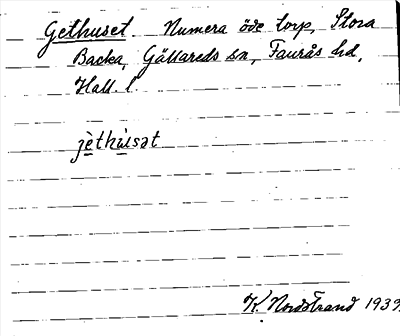 Gethuset. Numera öde torp, Stora
Backa, Gällareds sn, Faurås hd,
Hall. l.
jèthùsət
K. Nordstrand 1939